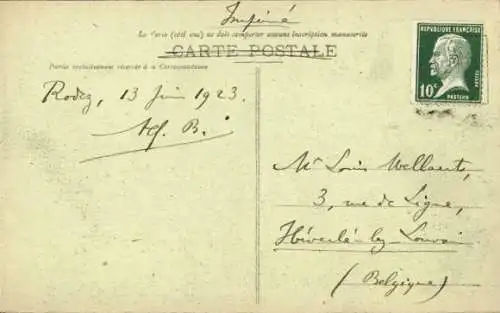 Imprimé
Le Recto (côté vu) ne doit comporter aucune inscription manuscrite
CARTE POSTALE
Partie exclusivement réservée à la Correspondance
RÉPUBLIQUE FRANÇAISE
10c
POSTES
PASTEUR
Rodez, 13 Juin 1923.
Alf. B.
Mr Louis Wellaerts,
3, rue de Ligne,
Héverlé-lez-Louvain
(Belgique)